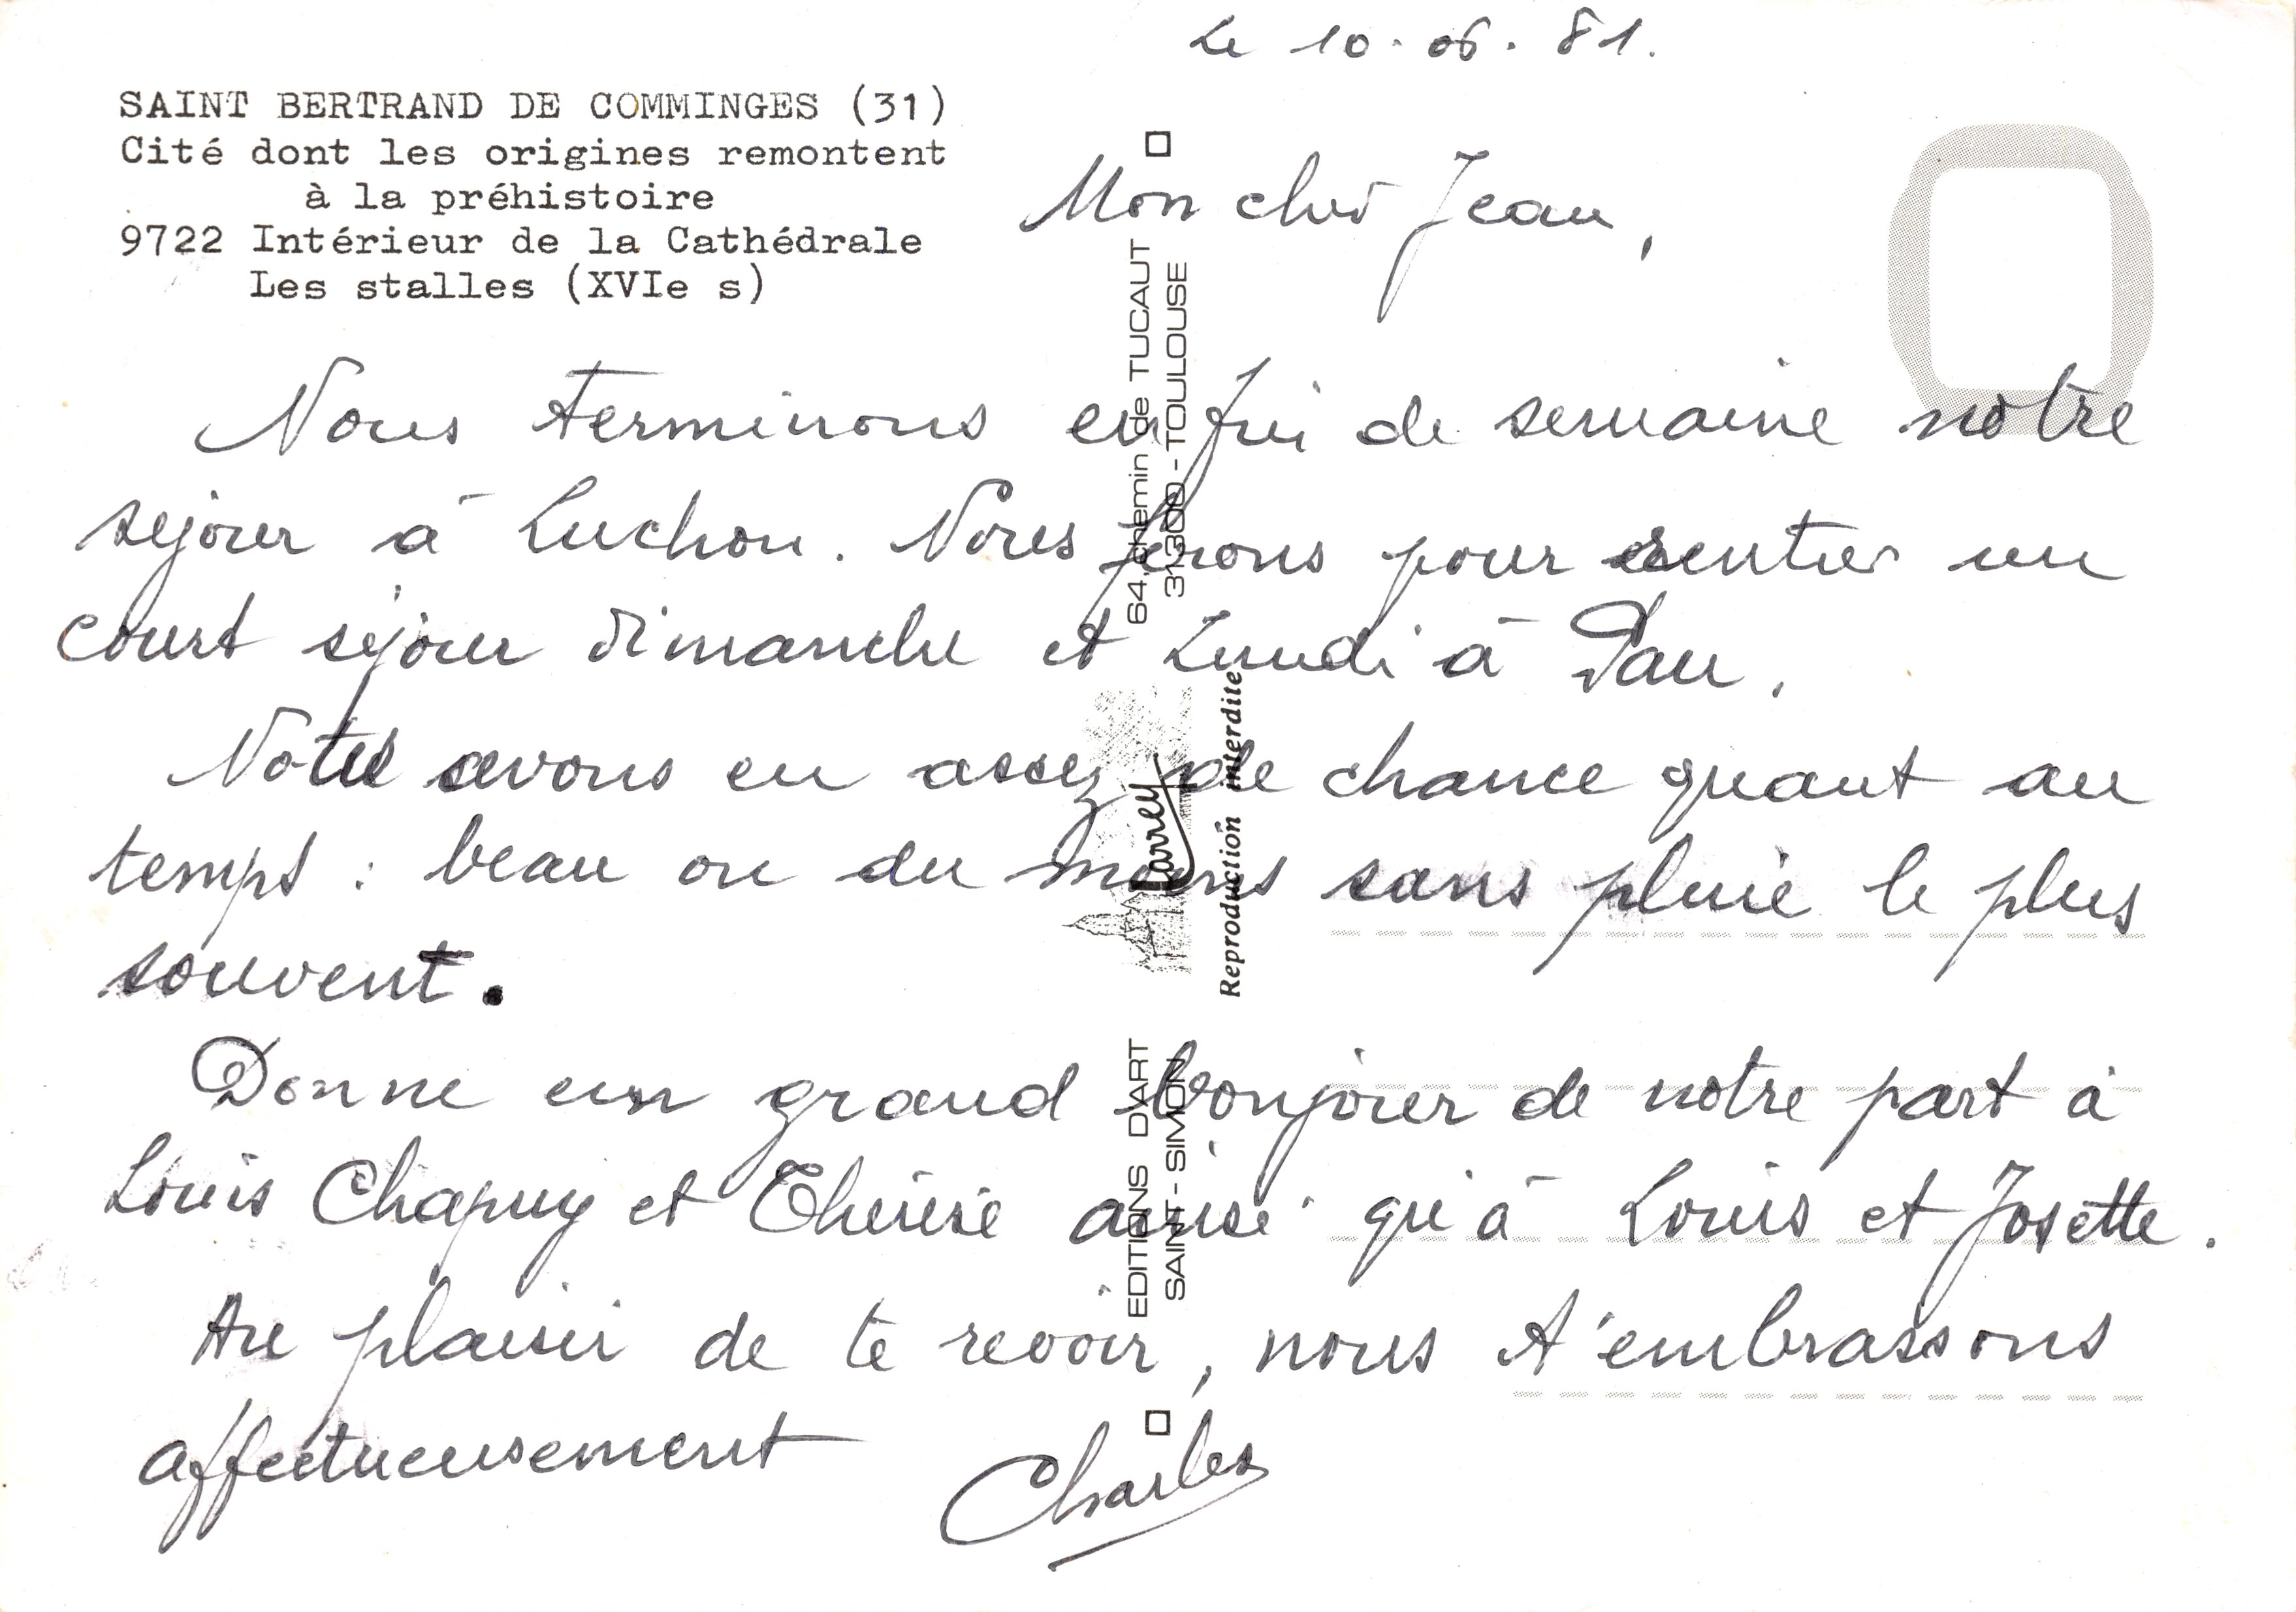 Le 10.06.81.
SAINT BERTRAND DE COMMINGES (31)
Cité dont les origines remontent
à la préhistoire
9722 Intérieur de la Cathédrale
Les stalles (XVIe s)
Mon cher Jean,
Nous terminons en fin de semaine notre
séjour à Luchon. Nous ferons pour rentrer un
court séjour dimanche et Lundi à Pau.
Nous avons eu assez de chance quant au
temps : beau ou du moins sans pluie le plus
souvent.
Donne un grand bonjour de notre part à
Louis Chapuy et Thérèse ainsi qu'à Louis et Josette.
Au plaisir de te revoir, nous t'embrassons
affectueusement
Charles
EDITIONS D'ART
SAINT-SIMON
Larrey
Reproduction interdite
64, chemin de TUCAUT
31300 - TOULOUSE